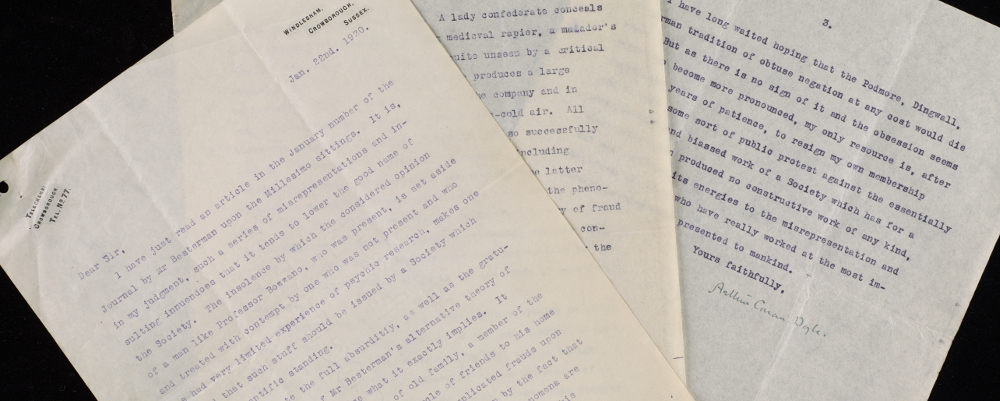 WINDLESHAM,
CROWBOROUGH,
SUSSEX.
TELEGRAMS
CROWBOROUGH
TEL: No 77.
Jan. 22nd. 1930.
Dear Sir,
I have just read an article in the January number of the
Journal by Mr Besterman upon the Millesimo sittings. It is,
in my judgment, such a series of misrepresentations and in-
sulting innuendoes that it tends to lower the good name of
the Society. The insolence by which the considered opinion
of a man like Professor Bozzano, who was present, is set aside
and treated with contempt by one who was not present and who
had very limited experience of psychic research, makes one
that such stuff should be issued by a Society which
scientific standing.
the full absurdity, as well as the gratu-
Mr Besterman's alternative theory of
what it exactly implies. It
of old family, a member of the
of friends to his home
frauds upon
by the fact that
are
A lady confederate conceals
medieval rapier, a matador's
quite unseen by a critical
produces a large
company and in
-cold air. All
so successfully
including
latter
the pheno-
of fraud
con-
the
3.
I have long waited hoping that the Podmore, Dingwall,
tradition of obtuse negation at any cost would die
But as there is no sign of it and the obsession seems
become more pronounced, my only resource is, after
years of patience, to resign my own membership
some sort of public protest against the essentially
biassed work of a Society which has for a
produced no constructive work of any kind,
its energies to the misrepresentation and
who have really worked at the most im-
presented to mankind.
Yours faithfully,
Arthur Conan Doyle.